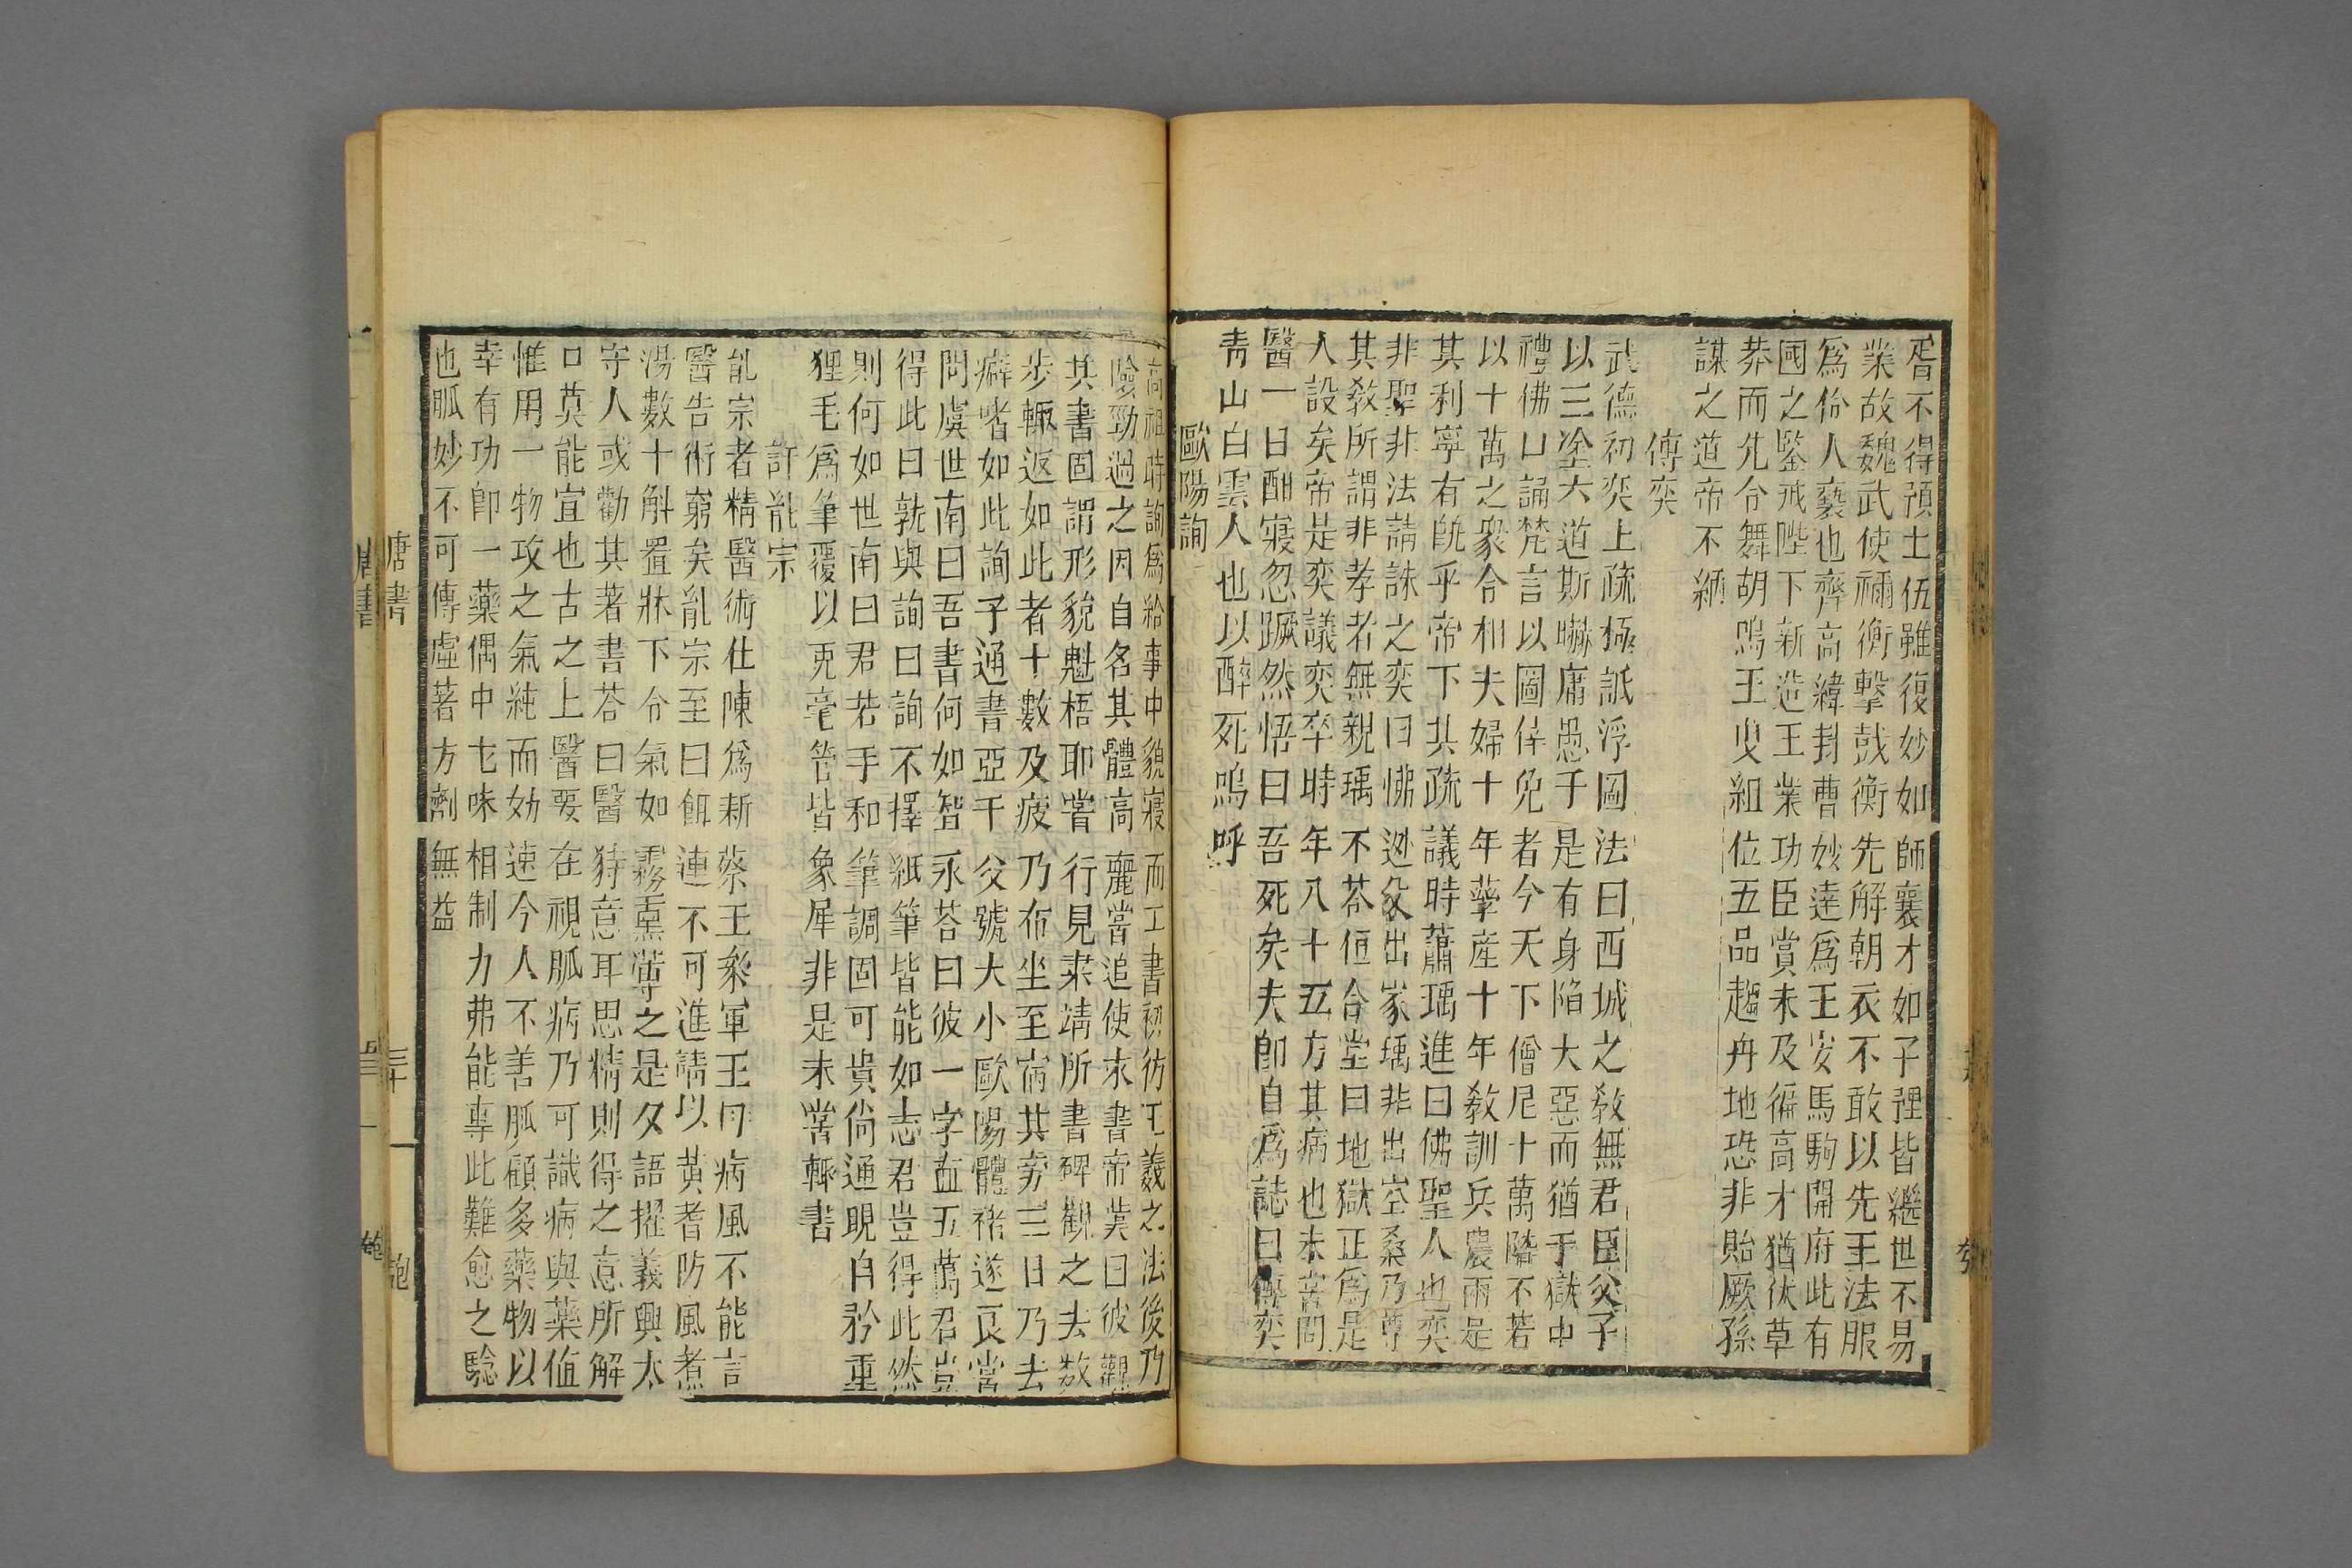 胥不得預士伍雖復妙如師襄才如子野皆繼世不易
業故魏武使禰衡擊鼓衡先解朝衣不敢以先王法服
爲伶人藝也齊高緯封曹妙達爲王安馬駒開府此有
國之鑒戒陛下新造王業功臣賞未及徧高才猶伏草
莽而先令舞胡鳴玉曳組位五品趨丹地恐非貽厥孫
謀之道帝不納
傅奕
武德初奕上疏極詆浮圖法曰西域之敎無君臣父子
以三塗六道斯嚇庸愚于是有身陷大惡而猶于獄中
禮佛口誦梵言以圖倖免者今天下僧尼十萬隋不若
以十萬之衆令相夫婦十年孳産十年敎訓兵農兩足
其利寧有旣乎帝下其疏議時蕭瑀進曰佛聖人也奕
非聖非法請誅之奕曰佛逃父出家瑀非出空桑乃尊
其敎所謂非孝者無親瑀不荅但合堂曰地獄正爲是
人設矣帝是奕議奕卒時年八十五方其病也未嘗問
醫一日酣寢忽蹶然悟曰吾死矣夫卽自爲誌曰傅奕
靑山白雲人也以醉死嗚呼
歐陽詢
高祖時詢爲給事中貌寢而工書初仿王羲之法後乃
險勁過之因自名其體高麗嘗追使求書帝嘆曰彼觀
其書固謂形貌魁梧耶嘗行見索靖所書碑觀之去數
步輒返如此者十數及疲乃布坐至宿其旁三日乃去
癖嗜如此詢子通書亞于父號大小歐陽體褚遂良嘗
問虞世南曰吾書何如智永荅曰彼一字直五萬君豈
得此曰孰與詢曰詢不擇紙筆皆能如志君豈得此然
則何如世南曰君若手和筆調固可貴尙通晚自矜重
狸毛爲筆覆以兎毫管皆象犀非是未嘗輒書
許胤宗
胤宗者精醫術仕陳爲新蔡王叅軍王母病風不能言
醫告術窮矣胤宗至曰餌連不可進請以黄耆防風煮
湯數十斛置牀下令氣如霧熏薄之是夕語擢義興太
守人或勸其著書荅曰醫特意耳思精則得之意所解
口莫能宣也古之上醫要在視脈病乃可識病與藥値
惟用一物攻之氣純而効速今人不善脈顧多藥物以
幸有功卽一藥偶中它味相制力弗能專此難愈之驗
也脈妙不可傳虛著方劑無益
唐書 三十